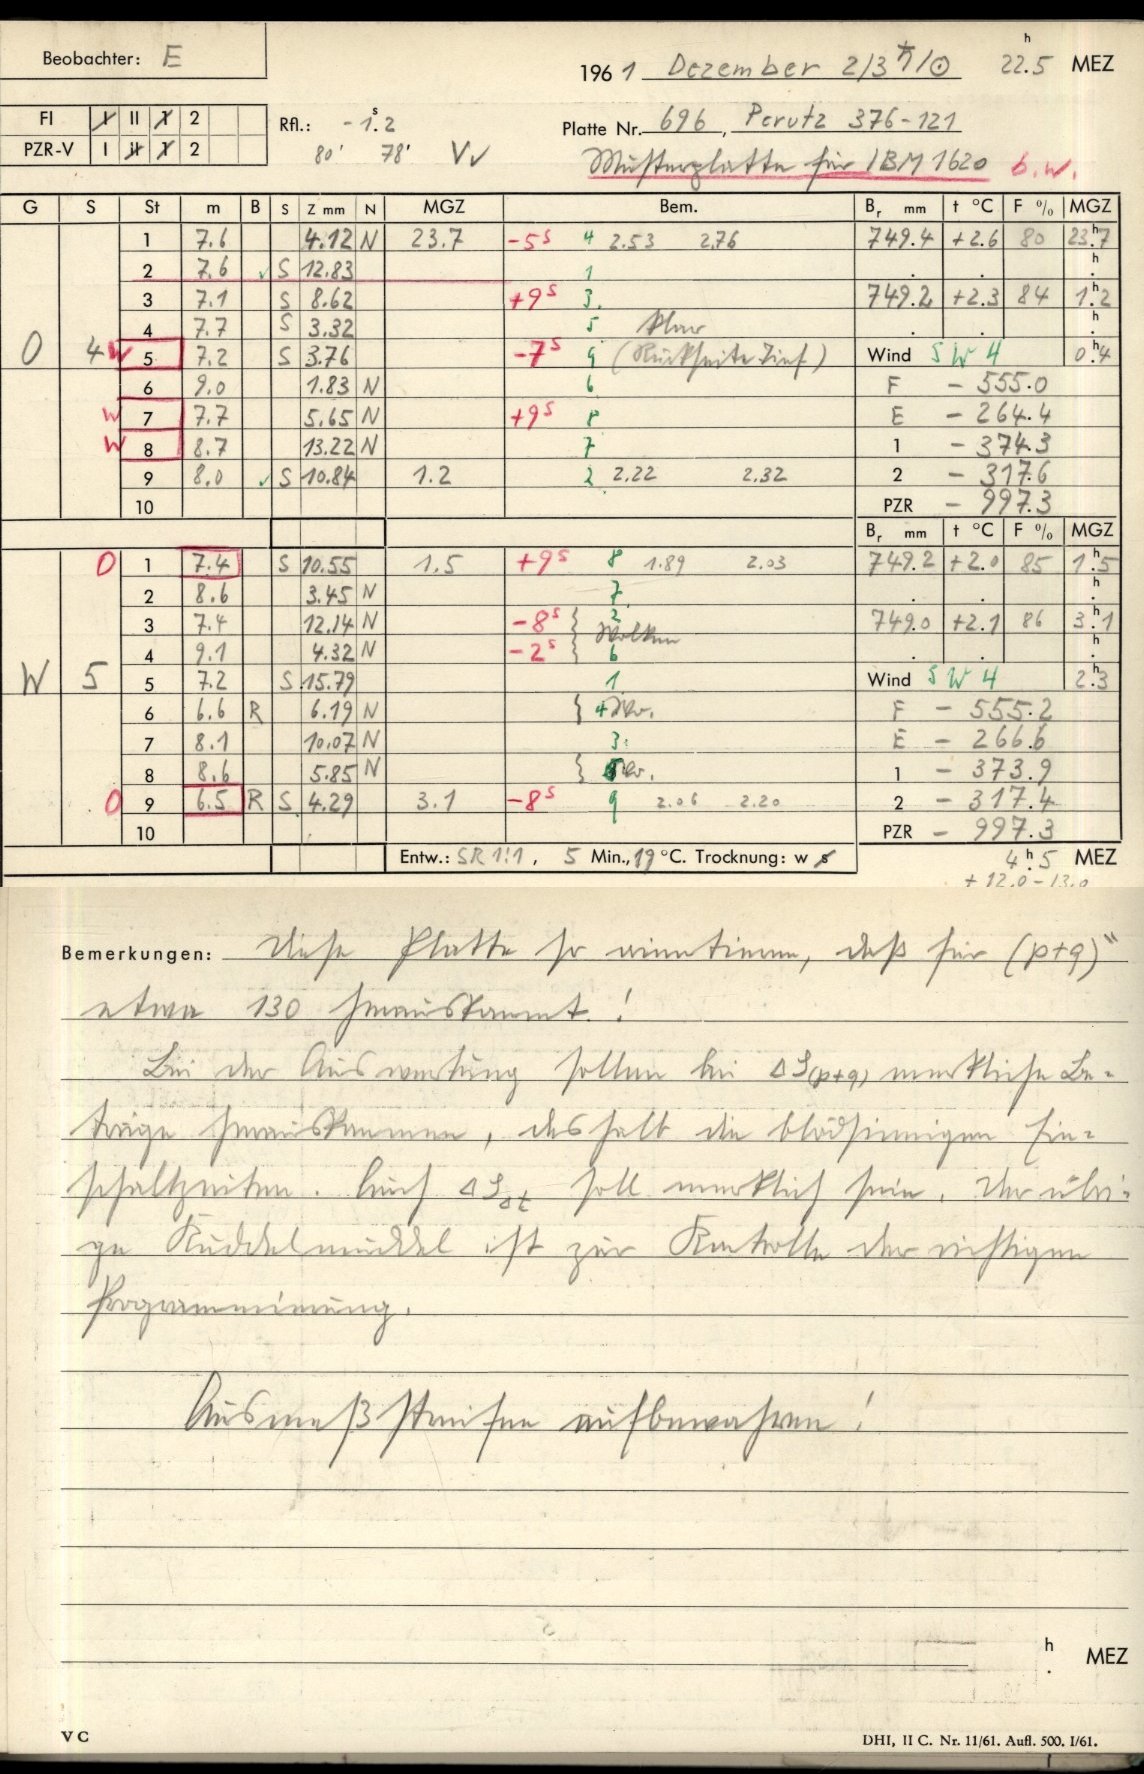 Beobachter: E
1961 Dezember 2/3 ♄/☉ 22.5 h MEZ
FI I II 1 2
PZR-V I II 1 2
Rfl.: - 1.2 s
80' 78' V✓
Platte Nr. 696, Perutz 376-121
Musterplatte für IBM 1620 b.w.
G S St m B S Z mm N MGZ Bem. Br mm t °C F % MGZ
1 7.6 4.12 N 23.7 -5s 4 2.53 2.76 749.4 +2.6 80 23.7 h
2 7.6 ✓ S 12.83 1 . . h
3 7.1 S 8.62 +9s 3. 749.2 +2.3 84 1.2 h
4 7.7 S 3.32 5 klar . . h
O 4 W 5 7.2 S 3.76 -7s 9 (Rückseite Tief) Wind SW 4 0.4 h
6 9.0 1.83 N 6 F - 555.0
W 7 7.7 5.65 N +9s 8 E - 264.4
W 8 8.7 13.22 N 7 1 - 374.3
9 8.0 ✓ S 10.84 1.2 2 2.22 2.32 2 - 317.6
10 PZR - 997.3
Br mm t °C F % MGZ
O 1 7.4 S 10.55 1.5 +9s 8 1.89 2.03 749.2 +2.0 85 1.5 h
2 8.6 3.45 N 7 . . h
3 7.4 12.14 N -8s } 2 Wolken 749.0 +2.1 86 3.1 h
4 9.1 4.32 N -2s } 6 . . h
W 5 5 7.2 S 15.79 1 Wind SW 4 2.3 h
6 6.6 R 6.19 N } 4 Wo. F - 555.2
7 8.1 10.07 N 3. E - 266.6
8 8.6 5.85 N } 5 Wo. 1 - 373.9
O 9 6.5 R S 4.29 3.1 -8s 9 2.06 2.20 2 - 317.4
10 PZR - 997.3
Entw.: SR 1:1, 5 Min., 19 °C. Trocknung: w s 4.5 h MEZ
+ 12.0 - 13.0
Bemerkungen: Diese Platte so orientieren, daß für (p+q)"
etwa 130 herauskommt!
Bei der Auswertung sollen bei ΔS(p+q) merkliche Be-
träge herauskommen, deshalb die blödsinnigen Ein-
schaltzeiten. Auch ΔSΔt soll merklich sein. Der übri-
ge Kuddelmuddel ist zur Kontrolle der richtigen
Programmierung.
Ausmeßstreifen aufbewahren!
h
. MEZ
V C
DHI, II C. Nr. 11/61. Aufl. 500. I/61.